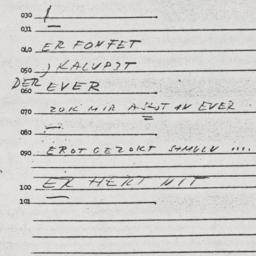 030 1
031 —
040 ER FONFET
050 ) KALUPET
DER EVER
060
070 ZOK MIR A SHOT AN EVER
080 —
090 ER OT GEZOKT SIMULN ....
100 ER HERT NIT
101 —